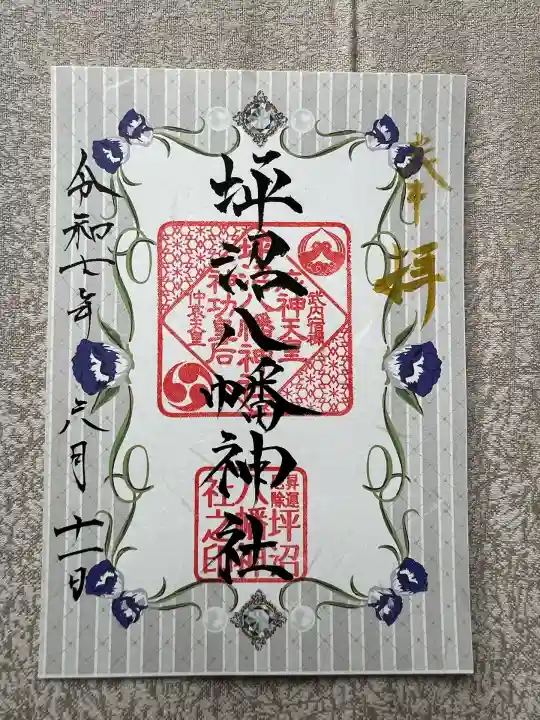 奉拝
坪沼八幡神社
令和七年 六月 十一日
武内宿禰
應神天皇
坪沼八幡神社
神功皇后
仲哀天皇
昇運
厄除
坪沼
八幡神
社之印